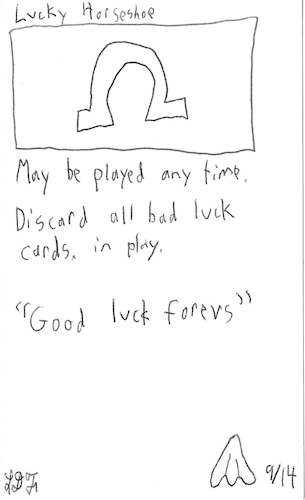 Lucky Horseshoe
May be played any time.
Discard all bad luck
cards, in play.
"Good luck forevs"
9/14